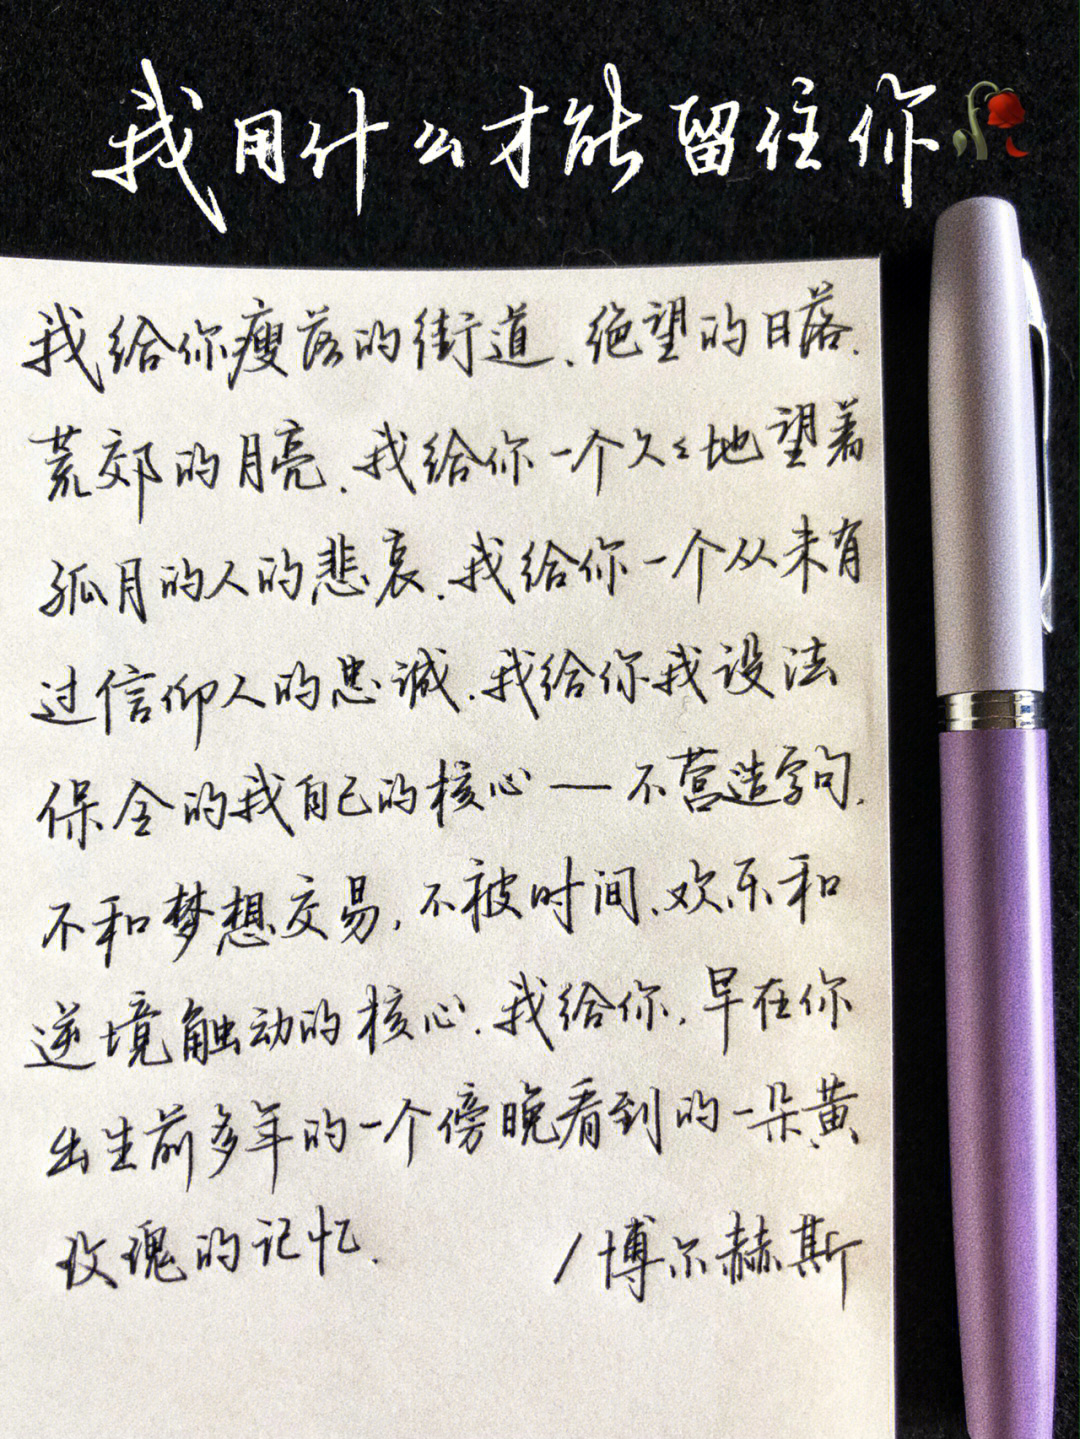 我用什么才能留住你
我给你瘦落的街道、绝望的日落、
荒郊的月亮。我给你一个久久地望着
孤月的人的悲哀。我给你一个从未有
过信仰人的忠诚。我给你我设法
保全的我自己的核心—不营造字句，
不和梦想交易，不被时间、欢乐和
逆境触动的核心。我给你，早在你
出生前多年的一个傍晚看到的一朵黄
玫瑰的记忆。 /博尔赫斯